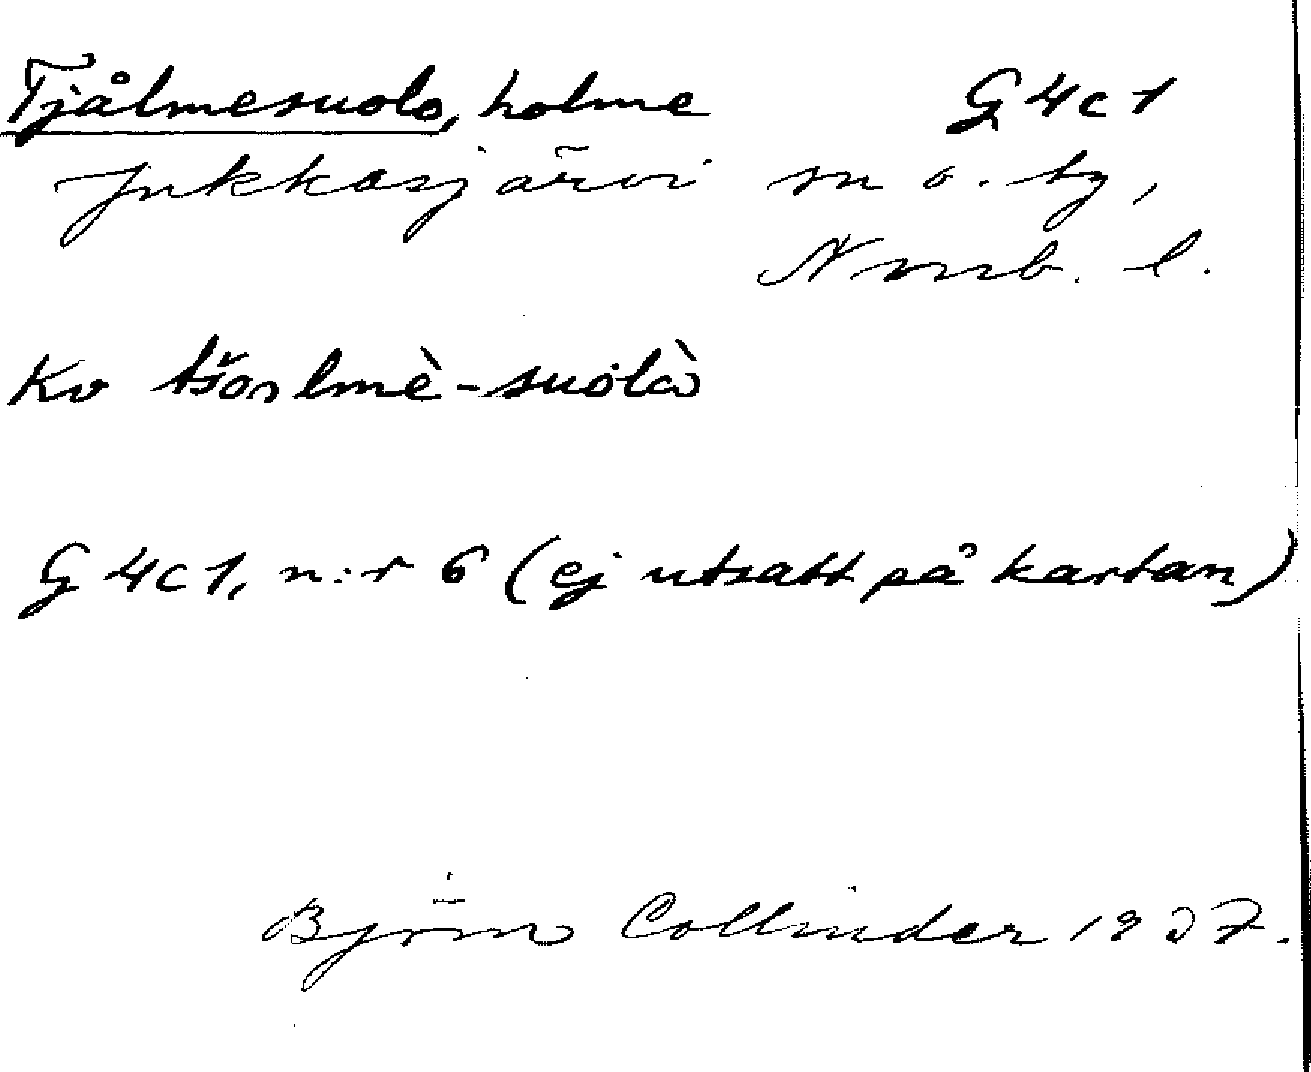 Tjålmesuolo, holme G 4c1
Jukkasjärvi sn o. by,
Nrrb. l.
Kv tšoɔlmè-suolà
G 4c1, n:r 6 (ej utsatt på kartan)
Björn Collinder 1937.